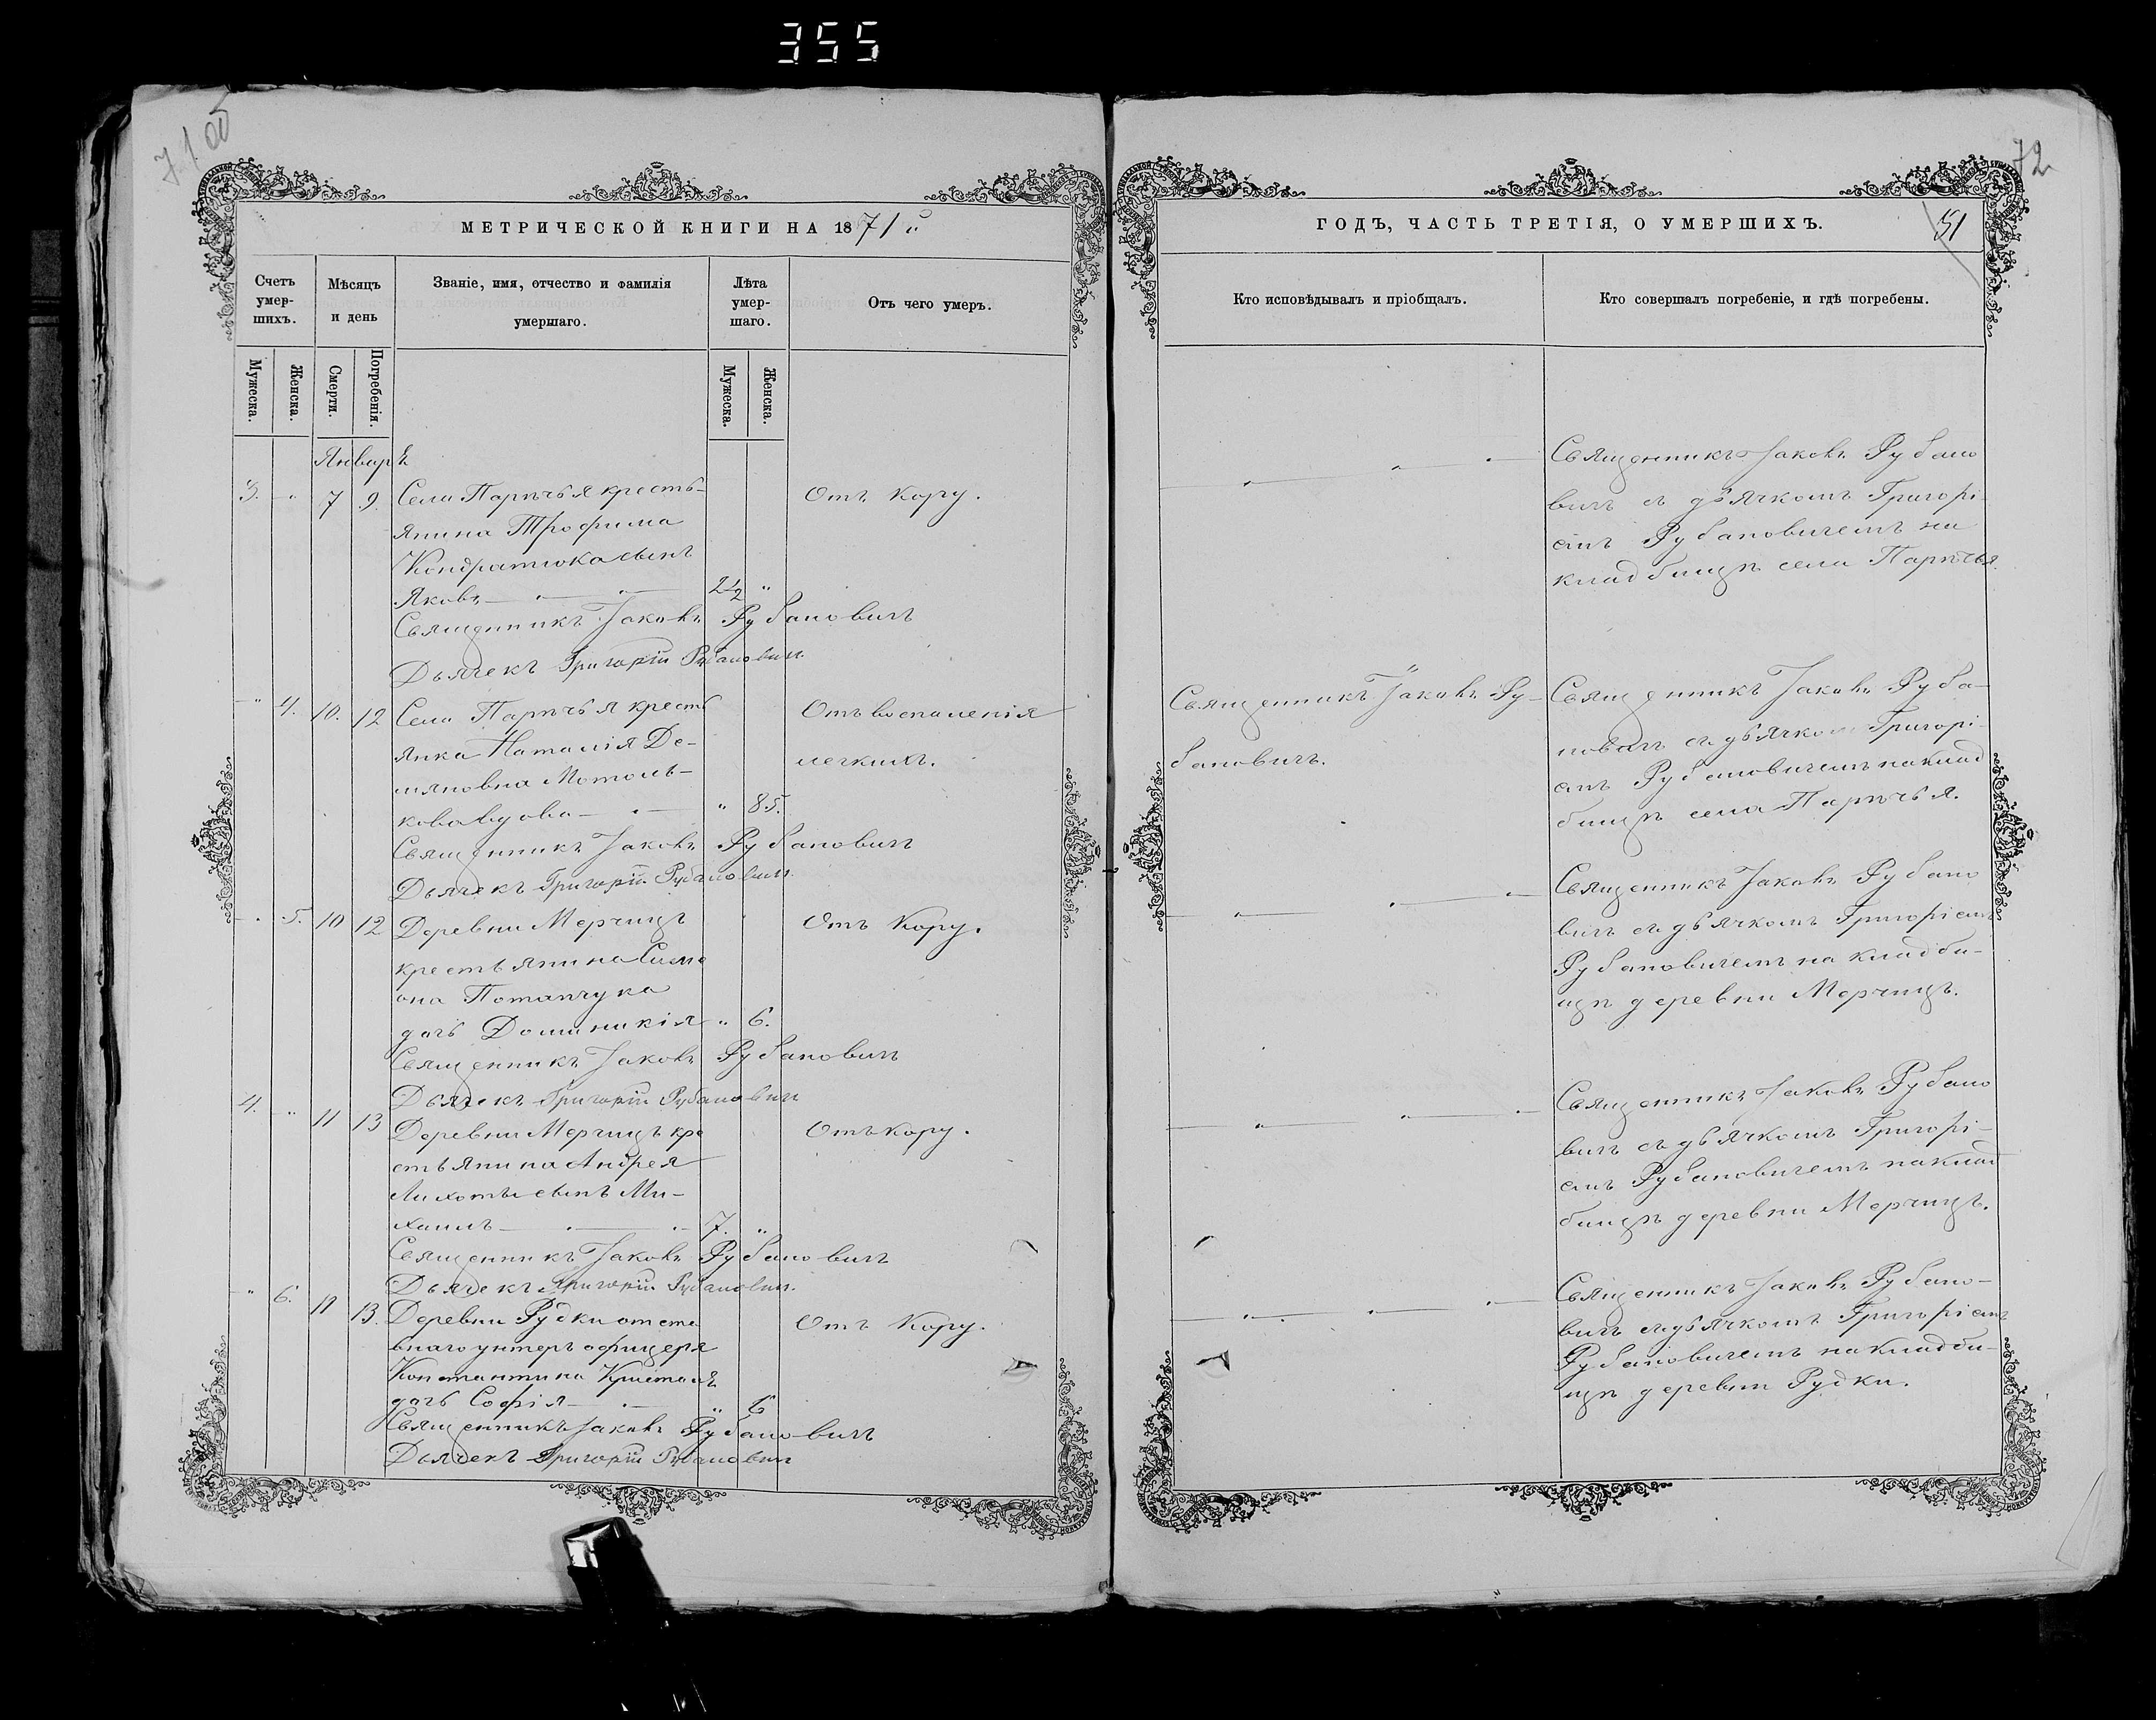 355
72
МЕТРИЧЕСКОЙ КНИГИ НА 1871й
Счетъ умер-шихъ.
Мѣсяцъ и день
Званіе, имя, отчество и фамилія
умершаго.
Лѣта умер-шаго.
Отъ чего умеръ.
Мужеска.
Женска.
Смерти.
Погребенія.
Мужеска.
Женска.
Январь
3. " 7 9. Села Парѣчья кресть-
янина Трофима
Кондратюка сынъ
Яковъ 2½ "
Отъ кору.
Священникъ Іаковъ Рубановичъ
Дьячекъ Григорій Рубановичъ
" 4. 10. 12 Села Парѣчья кресть
янка Наталія Де-
мяновна Мотоль-
кова вдова " 85.
Отъ воспаленія
легкихъ.
Священникъ Іаковъ Рубановичъ
Дьячекъ Григорій Рубановичъ
" 5. 10 12 Деревни Мерчицъ
крестьянина Симе
она Потапчука
дочь Доминикія " 6.
Отъ кору.
Священникъ Іаковъ Рубановичъ
Дьячекъ Григорій Рубановичъ
4. " 11 13 Деревни Мерчицъ кре
стьянина Андрея
Лихоты сынъ Ми-
хаилъ 7. "
Отъ кору.
Священникъ Іаковъ Рубановичъ
Дьячекъ Григорій Рубановичъ
" 6. 11 13. Деревни Рудки отста
внаго унтеръ офицера
Константина
дочь Софія " 6
Отъ кору.
Священникъ Іаковъ Рубановичъ
Дьячекъ Григорій Рубановичъ
ГОДЪ, ЧАСТЬ ТРЕТІЯ, О УМЕРШИХЪ.
51
Кто исповѣдывалъ и пріобщалъ.
Кто совершалъ погребеніе, и гдѣ погребены.
Священникъ Іаковъ Рубано
вичъ съ дьячкомъ Григорі-
емъ Рубановичемъ на
кладбищѣ села Парѣчья.
Священникъ Іаковъ Ру-
бановичъ.
Священникъ Іаковъ Руба-
новичъ съ дьячкомъ Григорі-
емъ Рубановичемъ на клад
бищѣ села Парѣчья.
Священникъ Іаковъ Рубано
вичъ съ дьячкомъ Григоріемъ
Рубановичемъ на кладби-
щѣ деревни Мерчицъ.
Священникъ Іаковъ Рубано
вичъ съ дьячкомъ Григорі-
емъ Рубановичемъ на клад
бищѣ деревни Мерчицъ.
Священникъ Іаковъ Рубано-
вичъ съ дьячкомъ Григоріемъ
Рубановичемъ на кладби-
щѣ деревни Рудки.